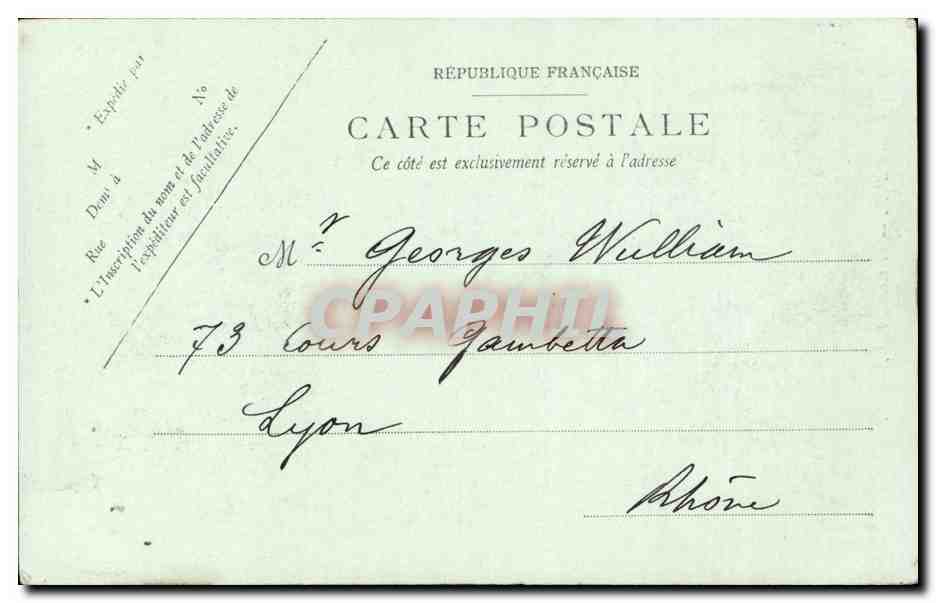 RÉPUBLIQUE FRANÇAISE
CARTE POSTALE
Ce côté est exclusivement réservé à l'adresse
* Expédié par
M
Dem^t à
Rue No
* L'Inscription du nom et de l'adresse de
l'expéditeur est facultative.
M^r Georges Wulliam
CPAPHIL
73 Cours Gambetta
Lyon
Rhône